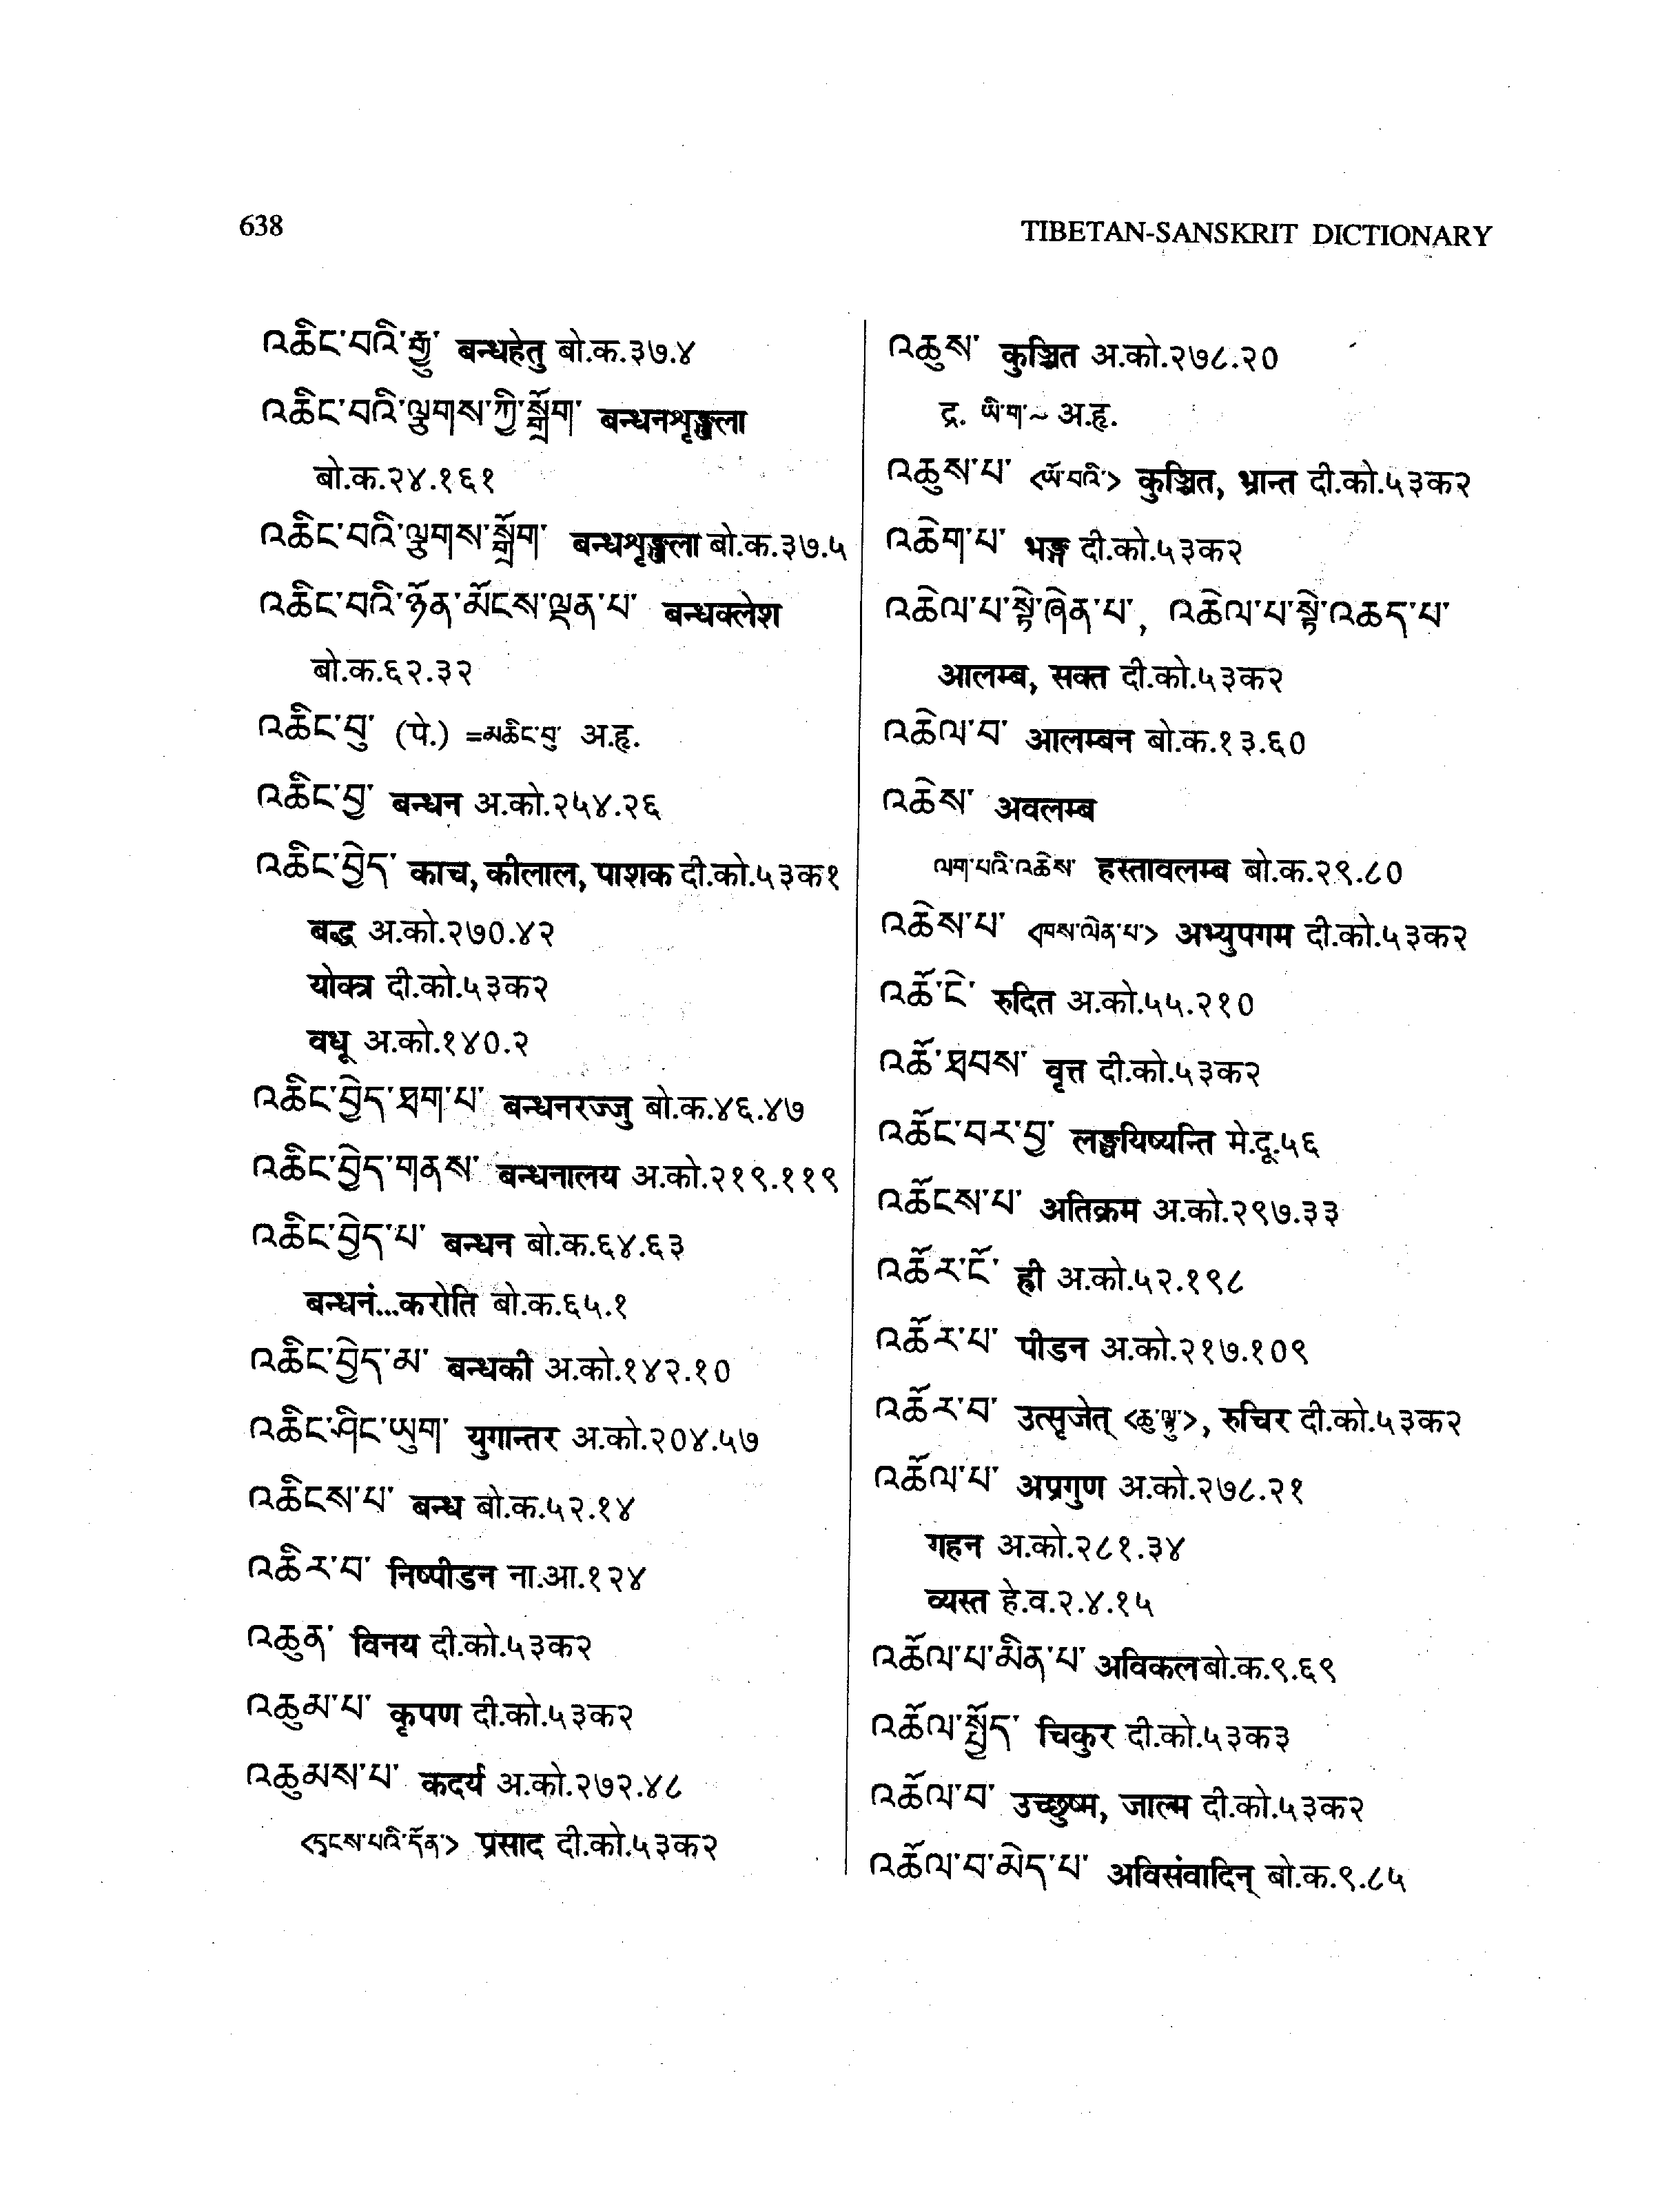 638
TIBETAN-SANSKRIT DICTIONARY
འཆིང་བའི་རྒྱུ་ बन्धहेतु बो.क.३७.४
འཆིང་བའི་ལྕགས་ཀྱི་སྒྲོག་ बन्धनशृङ्खला
बो.क.२४.१६१
འཆིང་བའི་ལྕགས་སྒྲོག་ बन्धशृङ्खला बो.क.३७.५
འཆིང་བའི་ཉོན་མོངས་ལྡན་པ་ बन्धक्लेश
बो.क.६२.३२
འཆིང་བུ་ (पे.) =མཆིང་བུ་ अ.हृ.
འཆིང་བྱ་ बन्धन अ.को.२५४.२६
འཆིང་བྱེད་ काच, कीलाल, पाशक दी.को.५३क१
बद्ध अ.को.२७०.४२
योक्त्र दी.को.५३क२
वधू अ.को.१४०.२
འཆིང་བྱེད་ཐག་པ་ बन्धनरज्जु बो.क.४६.४७
འཆིང་བྱེད་གནས་ बन्धनालय अ.को.२१९.११९
འཆིང་བྱེད་པ་ बन्धन बो.क.६४.६३
बन्धनं...करोति बो.क.६५.१
འཆིང་བྱེད་མ་ बन्धकी अ.को.१४२.१०
འཆིང་ཤིང་ཡུག་ युगान्तर अ.को.२०४.५७
འཆིངས་པ་ बन्ध बो.क.५२.१४
འཆིར་བ་ निष्पीडन ना.आ.१२४
འཆུན་ विनय दी.को.५३क२
འཆུམ་པ་ कृपण दी.को.५३क२
འཆུམས་པ་ कदर्य अ.को.२७२.४८
<དྭངས་པའི་དོན་> प्रसाद दी.को.५३क२
འཆུས་ कुञ्चित अ.को.२७८.२०
द्र. ཡིག་~ अ.हृ.
འཆུས་པ་ <ཡོ་བའི་> कुञ्चित, भ्रान्त दी.को.५३क२
འཆེག་པ་ भङ्ग दी.को.५३क२
འཆེལ་པ་སྟེ་ཞེན་པ་, འཆེལ་པ་སྟེ་འཆད་པ་
आलम्ब, सक्त दी.को.५३क२
འཆེལ་བ་ आलम्बन बो.क.१३.६०
འཆེས་ अवलम्ब
ལག་པའི་འཆེས་ हस्तावलम्ब बो.क.२९.८०
འཆེས་པ་ <ཁས་ལེན་པ་> अभ्युपगम दी.को.५३क२
འཆོ་ངེ་ रुदित अ.को.५५.२१०
འཆོ་ཐབས་ वृत्त दी.को.५३क२
འཆོང་བར་བྱ་ लङ्घयिष्यन्ति मे.दू.५६
འཆོངས་པ་ अतिक्रम अ.को.२९७.३३
འཆོར་ངོ་ ह्री अ.को.५२.१९८
འཆོར་པ་ पीडन अ.को.२१७.१०९
འཆོར་བ་ उत्सृजेत् <ཆུ་ལྟ་བུ་>, रुचिर दी.को.५३क२
འཆོལ་པ་ अप्रगुण अ.को.२७८.२१
गहन अ.को.२८१.३४
व्यस्त हे.व.२.४.१५
འཆོལ་པ་མིན་པ་ अविकल बो.क.९.६९
འཆོལ་སྤྱོད་ चिकुर दी.को.५३क३
འཆོལ་བ་ उच्छुष्म, जाल्म दी.को.५३क२
འཆོལ་བ་མེད་པ་ अविसंवादिन् बो.क.९.८५